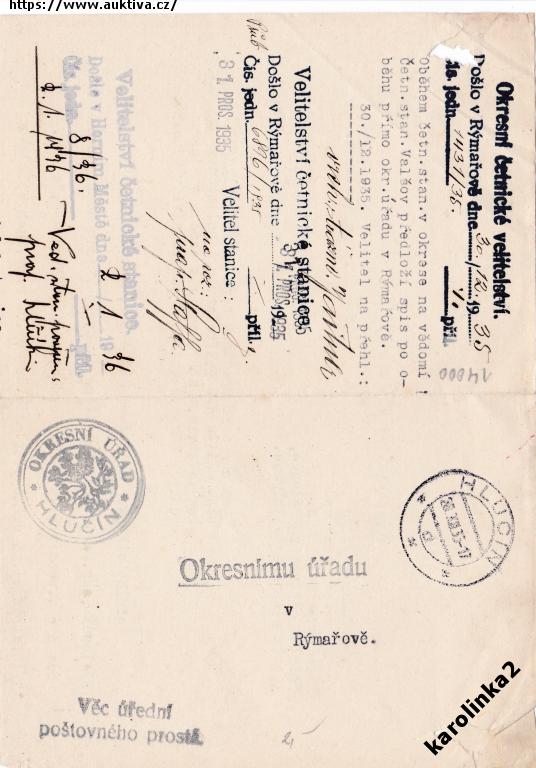 https://www.auktiva.cz/
Okresní četnické velitelství.
Došlo v Rýmařově dne 30./12. 1935
Čís. jedn. 1431/35. /. příl.
Oběhem četn.stan.v okrese na vědomí !
Četn.stan.Valšov předloží spis po o-
běhu přímo okr.úřadu v Rýmařově.
30./12.1935. Velitel na přehl.:
Velitelství četnické stanice
Došlo v Rýmařově dne 31. PROS. 1935
Čís. jedn. 6826/1935 příl.
31. PROS. 1935 Velitel stanice :
Velitelství četnické stanice.
Došlo v Horním Městě dne 2/1 1936
Čís. jedn. 8/36. příl.
2./1. 1936
14800
OKRESNÍ ÚŘAD
* HLUČÍN *
HLUČÍN
Okresnímu úřadu
v
Rýmařově.
Věc úřední
poštovného prostá.
karolinka2